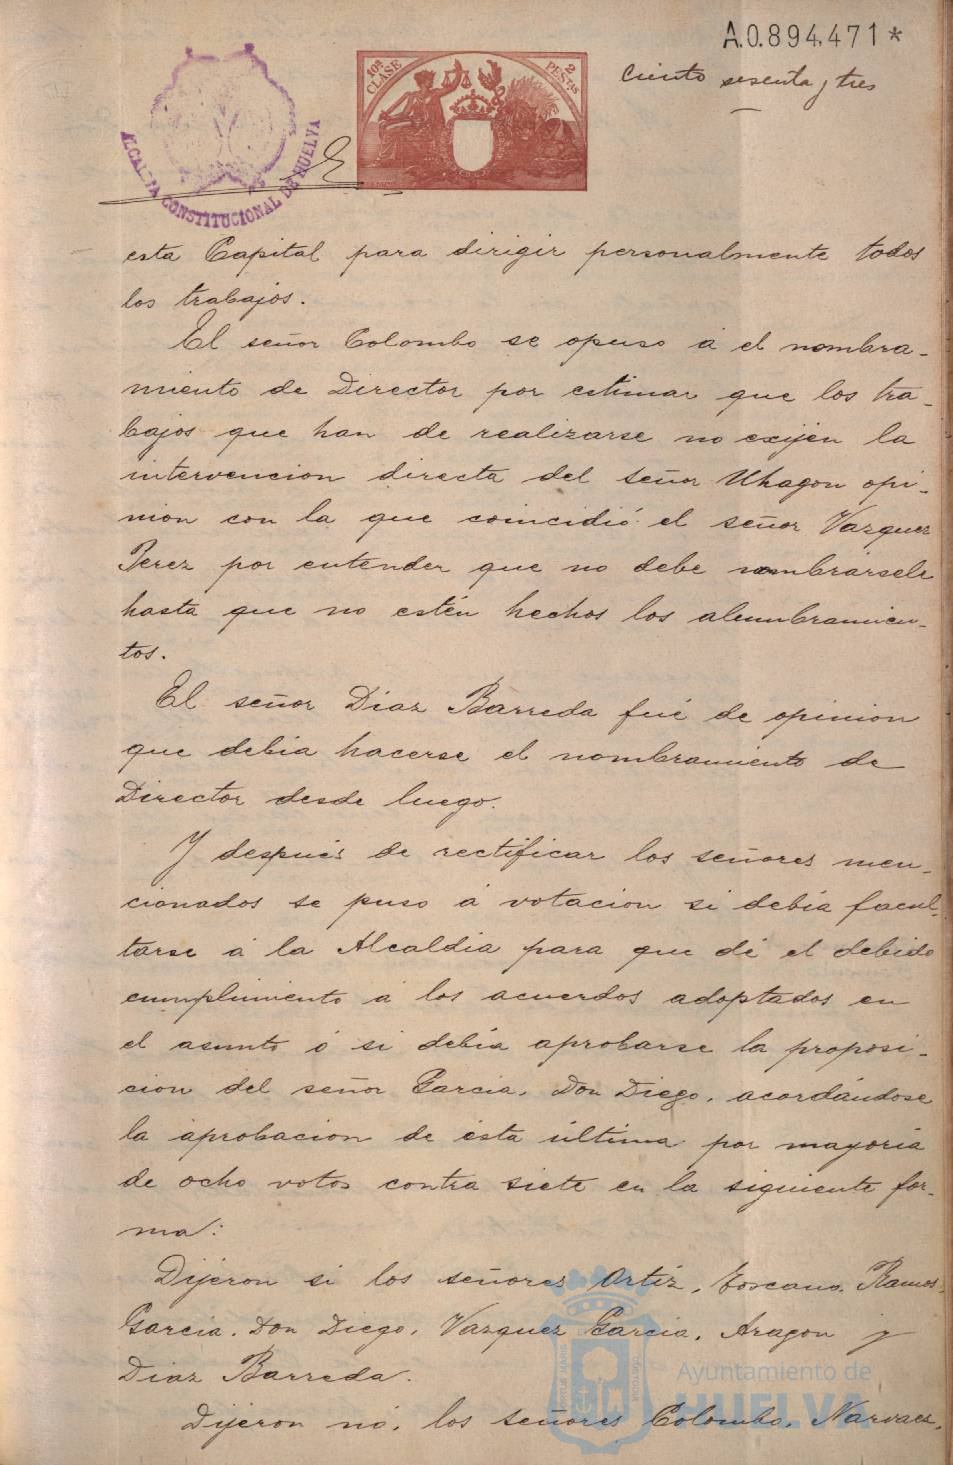 A.0.894.471*
10ª CLASE
2 PESTAS
Ciento sesenta y tres
ALCALDIA CONSTITUCIONAL DE HUELVA
esta Capital para dirigir personalmente todos
los trabajos.
El señor Colombo se opuso á el nombra-
miento de Director por estimar que los tra-
bajos que han de realizarse no exijen la
intervencion directa del señor Uhagon opi-
nion con la que coincidió el señor Vazquez
Perez por entender que no debe nombrársele
hasta que no estén hechos los alumbramien-
tos.
El señor Diaz Barreda fué de opinion
que debia hacerse el nombramiento de
Director desde luego.
Y después de rectificar los señores men-
cionados se puso á votacion si debía facul-
tarse á la Alcaldía para que dé el debido
cumplimiento á los acuerdos adoptados en
el asunto ó si debía aprobarse la proposi-
cion del señor Garcia, Don Diego, acordándose
la aprobacion de ésta última por mayoría
de ocho votos contra siete en la siguiente for-
ma:
Dijeron si los señores Ortíz, Toscano, Ramos,
Garcia, Don Diego, Vazquez Garcia, Aragon y
Diaz Barreda.
Dijeron nó, los señores Colombo, Narvaez,
Ayuntamiento de
HUELVA